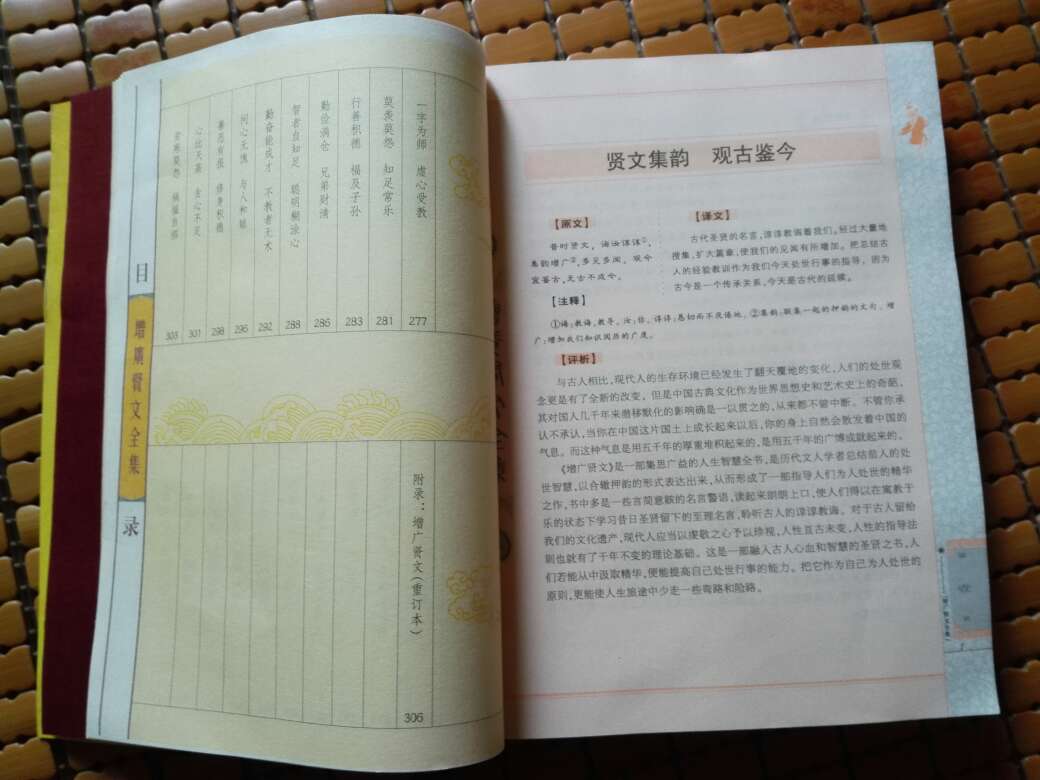 一字为师　虚心受教
277
莫羡莫怨　知足常乐
281
行善积德　福及子孙
283
勤俭满仓　兄弟财清
285
智者自知足　聪明糊涂心
288
勤奋能成才　不教者无术
292
问心无愧　与人和睦
295
善恶有报　修身积德
298
心比天高　贪心不足
301
祸福自招
303
附录：增广贤文(重订本)
306
目
增广贤文全集
录
贤文集韵　观古鉴今
【原文】
昔时贤文，诲汝谆谆①，
集韵增广②，多见多闻。观今
宜鉴古，无古不成今。
【译文】
古代圣贤的名言，谆谆教诲着我们。经过大量地
搜集，扩大篇章，使我们的见闻有所增加。把总结古
人的经验教训作为我们今天处世行事的指导，因为
古今是一个传承关系，今天是古代的延续。
【注释】
①诲：教诲，教导。汝：你。谆谆：恳切而不厌倦地。②集韵：联集一起的押韵的文句。增
广：增加我们知识阅历的广度。
【评析】
与古人相比，现代人的生存环境已经发生了翻天覆地的变化，人们的处世观
念更是有了全新的改变，但是中国古典文化作为世界思想史和艺术史上的奇葩，
其对国人几千年来潜移默化的影响确是一以贯之的，从来都不曾中断。不管你承
认不承认，当你在中国这片国土上成长起来以后，你的身上自然会散发着中国的
气息。而这种气息是用五千年的厚重堆积起来的，是用五千年的广博成就起来的。
《增广贤文》是一部集思广益的人生智慧全书，是历代文人学者总结前人的处
世智慧，以合辙押韵的形式表达出来，从而形成了一部指导人们为人处世的精华
之作，书中多是一些言简意赅的名言警语，读起来朗朗上口，使人们得以在寓教于
乐的状态下学习昔日圣贤留下的至理名言，聆听古人的谆谆教诲。对于古人留给
我们的文化遗产，现代人应当以虔敬之心予以珍视，人性亘古未变，人性的指导法
则也就有了千年不变的理论基础。这是一部融入古人心血和智慧的圣贤之书，人
们若能从中汲取精华，便能提高自己处世行事的能力。把它作为自己为人处世的
原则，更能使人生旅途中少走一些弯路和险路。
1